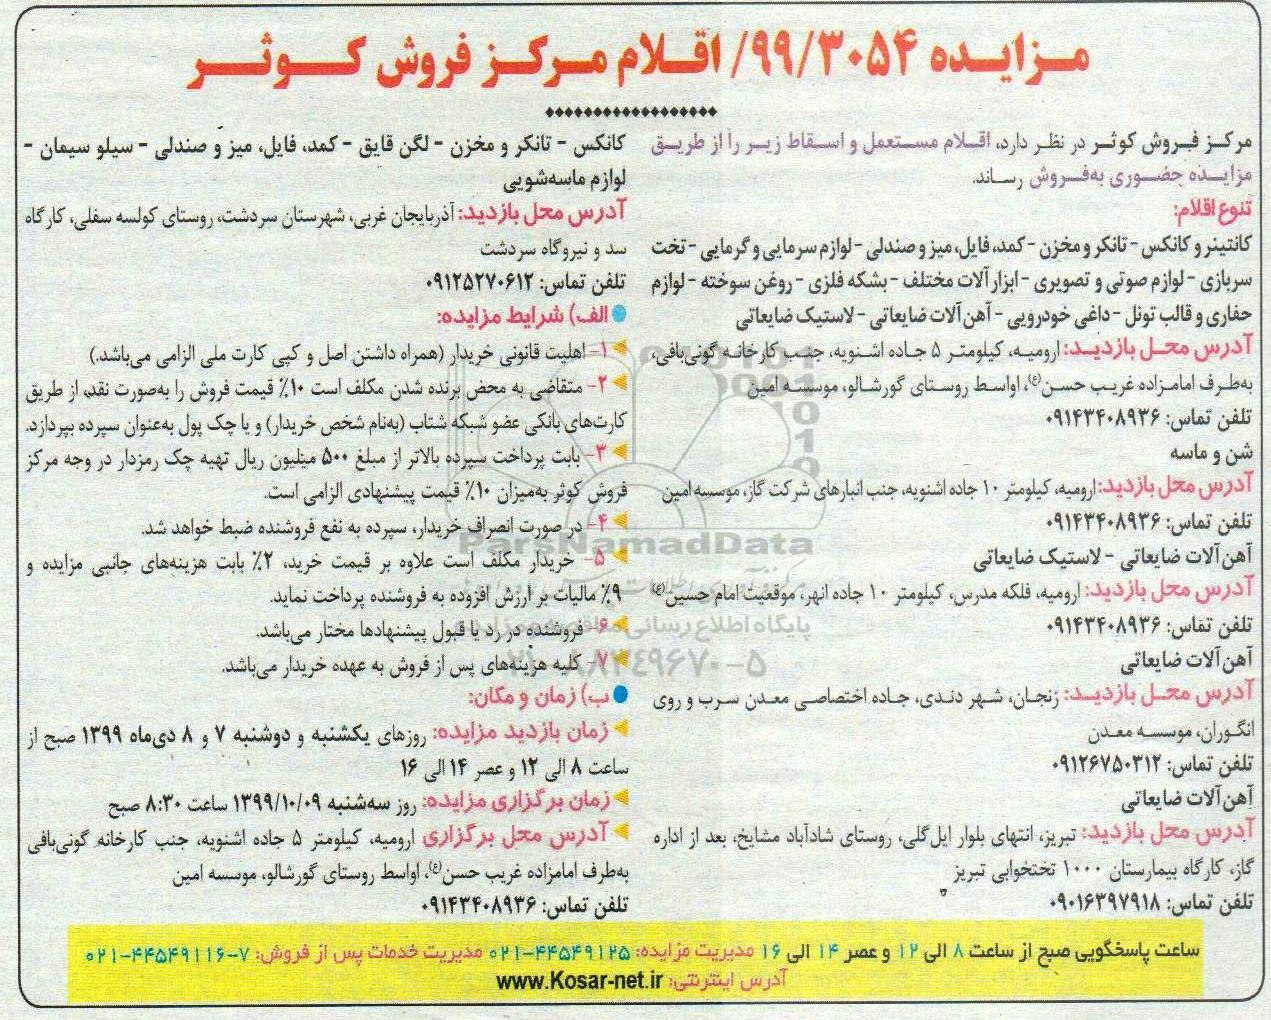 مزایده ۹۹/۳۰۵۴/ اقلام مرکز فروش کوثر
مرکز فروش کوثر در نظر دارد، اقلام مستعمل و اسقاط زیر را از طریق
مزایده حضوری به‌فروش رساند.
تنوع اقلام:
کانتینر و کانکس - تانکر و مخزن - کمد، فایل، میز و صندلی - لوازم سرمایی و گرمایی - تخت
سربازی - لوازم صوتی و تصویری - ابزار آلات مختلف - بشکه فلزی - روغن سوخته - لوازم
حفاری و قالب تونل - داغی خودرویی - آهن آلات ضایعاتی - لاستیک ضایعاتی
آدرس محل بازدید: ارومیه، کیلومتر ۵ جاده اشنویه، جنب کارخانه گونی‌بافی،
به‌طرف امامزاده غریب حسن(ع)، اواسط روستای گورشالو، موسسه امین
تلفن تماس: ۰۹۱۴۳۴۰۸۹۳۶
شن و ماسه
آدرس محل بازدید: ارومیه، کیلومتر ۱۰ جاده اشنویه، جنب انبارهای شرکت گاز، موسسه امین
تلفن تماس: ۰۹۱۴۳۴۰۸۹۳۶
آهن آلات ضایعاتی - لاستیک ضایعاتی
آدرس محل بازدید: ارومیه، فلکه مدرس، کیلومتر ۱۰ جاده انهر، موقعیت امام حسین(ع)
تلفن تماس: ۰۹۱۴۳۴۰۸۹۳۶
آهن آلات ضایعاتی
آدرس محل بازدید: زنجان، شهر دندی، جاده اختصاصی معدن سرب و روی
انگوران، موسسه معدن
تلفن تماس: ۰۹۱۲۶۷۵۰۳۱۲
آهن آلات ضایعاتی
آدرس محل بازدید: تبریز، انتهای بلوار ایل‌گلی، روستای شادآباد مشایخ، بعد از اداره
گاز، کارگاه بیمارستان ۱۰۰۰ تختخوابی تبریز
تلفن تماس: ۰۹۰۱۶۳۹۷۹۱۸
کانکس - تانکر و مخزن - لگن قایق - کمد، فایل، میز و صندلی - سیلو سیمان -
لوازم ماسه‌شویی
آدرس محل بازدید: آذربایجان غربی، شهرستان سردشت، روستای کولسه سفلی، کارگاه
سد و نیروگاه سردشت
تلفن تماس: ۰۹۱۲۵۲۷۰۶۱۲
الف) شرایط مزایده:
۱- اهلیت قانونی خریدار (همراه داشتن اصل و کپی کارت ملی الزامی می‌باشد.)
۲- متقاضی به محض برنده شدن مکلف است ۱۰٪ قیمت فروش را به‌صورت نقد، از طریق
کارت‌های بانکی عضو شبکه شتاب (به‌نام شخص خریدار) و یا چک پول به‌عنوان سپرده بپردازد.
۳- بابت پرداخت سپرده بالاتر از مبلغ ۵۰۰ میلیون ریال تهیه چک رمزدار در وجه مرکز
فروش کوثر به‌میزان ۱۰٪ قیمت پیشنهادی الزامی است.
۴- در صورت انصراف خریدار، سپرده به نفع فروشنده ضبط خواهد شد.
۵- خریدار مکلف است علاوه بر قیمت خرید، ۲٪ بابت هزینه‌های جانبی مزایده و
۹٪ مالیات بر ارزش افزوده به فروشنده پرداخت نماید.
۶- فروشنده در رد یا قبول پیشنهادها مختار می‌باشد.
۷- کلیه هزینه‌های پس از فروش به عهده خریدار می‌باشد.
ب) زمان و مکان:
زمان بازدید مزایده: روزهای یکشنبه و دوشنبه ۷ و ۸ دی‌ماه ۱۳۹۹ صبح از
ساعت ۸ الی ۱۲ و عصر ۱۴ الی ۱۶
زمان برگزاری مزایده: روز سه‌شنبه ۱۳۹۹/۱۰/۰۹ ساعت ۸:۳۰ صبح
آدرس محل برگزاری ارومیه، کیلومتر ۵ جاده اشنویه، جنب کارخانه گونی‌بافی
به‌طرف امامزاده غریب حسن(ع)، اواسط روستای گورشالو، موسسه امین
تلفن تماس: ۰۹۱۴۳۴۰۸۹۳۶
ساعت پاسخگویی صبح از ساعت ۸ الی ۱۲ و عصر ۱۴ الی ۱۶ مدیریت مزایده: ۰۲۱-۴۴۵۴۹۱۲۵ مدیریت خدمات پس از فروش: ۷-۰۲۱-۴۴۵۴۹۱۱۶
آدرس اینترنتی: www.Kosar-net.ir
ParsNamadData
پایگاه اطلاع رسانی مناقصه و مزایده
۰۲۱-۸۸۳۴۹۶۷۰-۵